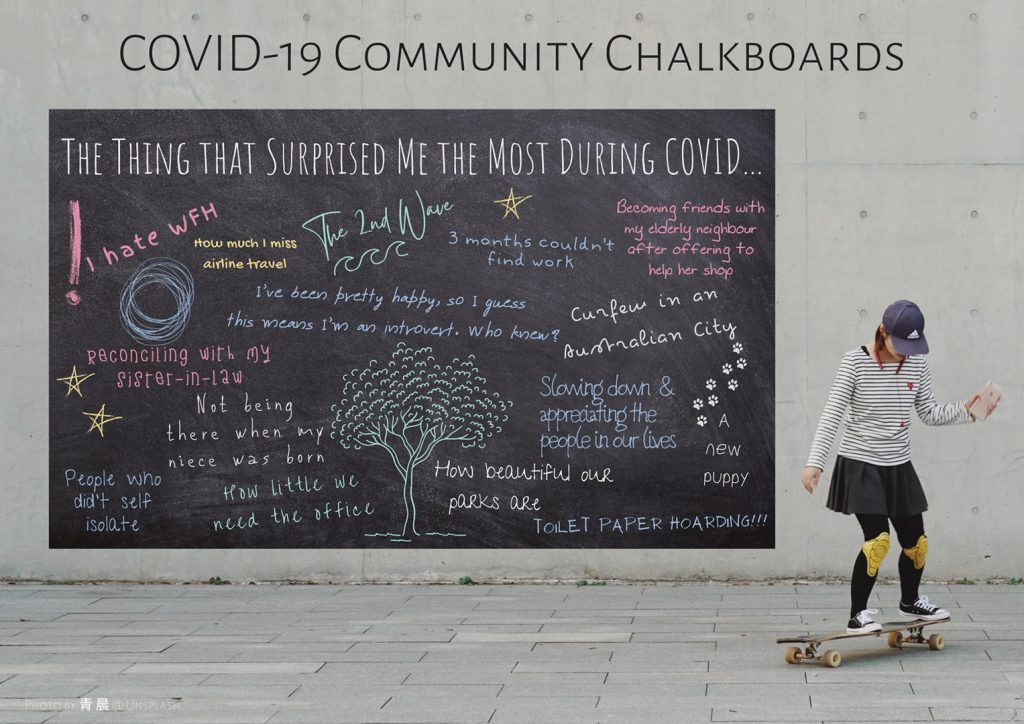 COVID-19 Community Chalkboards
The Thing that Surprised Me the Most During COVID...
I hate WFH
How much I miss
airline travel
The 2nd Wave
3 months couldn't
find work
Becoming friends with
my elderly neighbour
after offering to
help her shop
I've been pretty happy, so I guess
this means I'm an introvert. Who knew?
Curfew in an
Australian City
Reconciling with my
sister-in-law
Not being
there when my
niece was born
Slowing down &
appreciating the
people in our lives
A
new
puppy
People who
did't self
isolate
How little we
need the office
How beautiful our
parks are
TOILET PAPER HOARDING!!!
Photo by 青晨 @ Unsplash